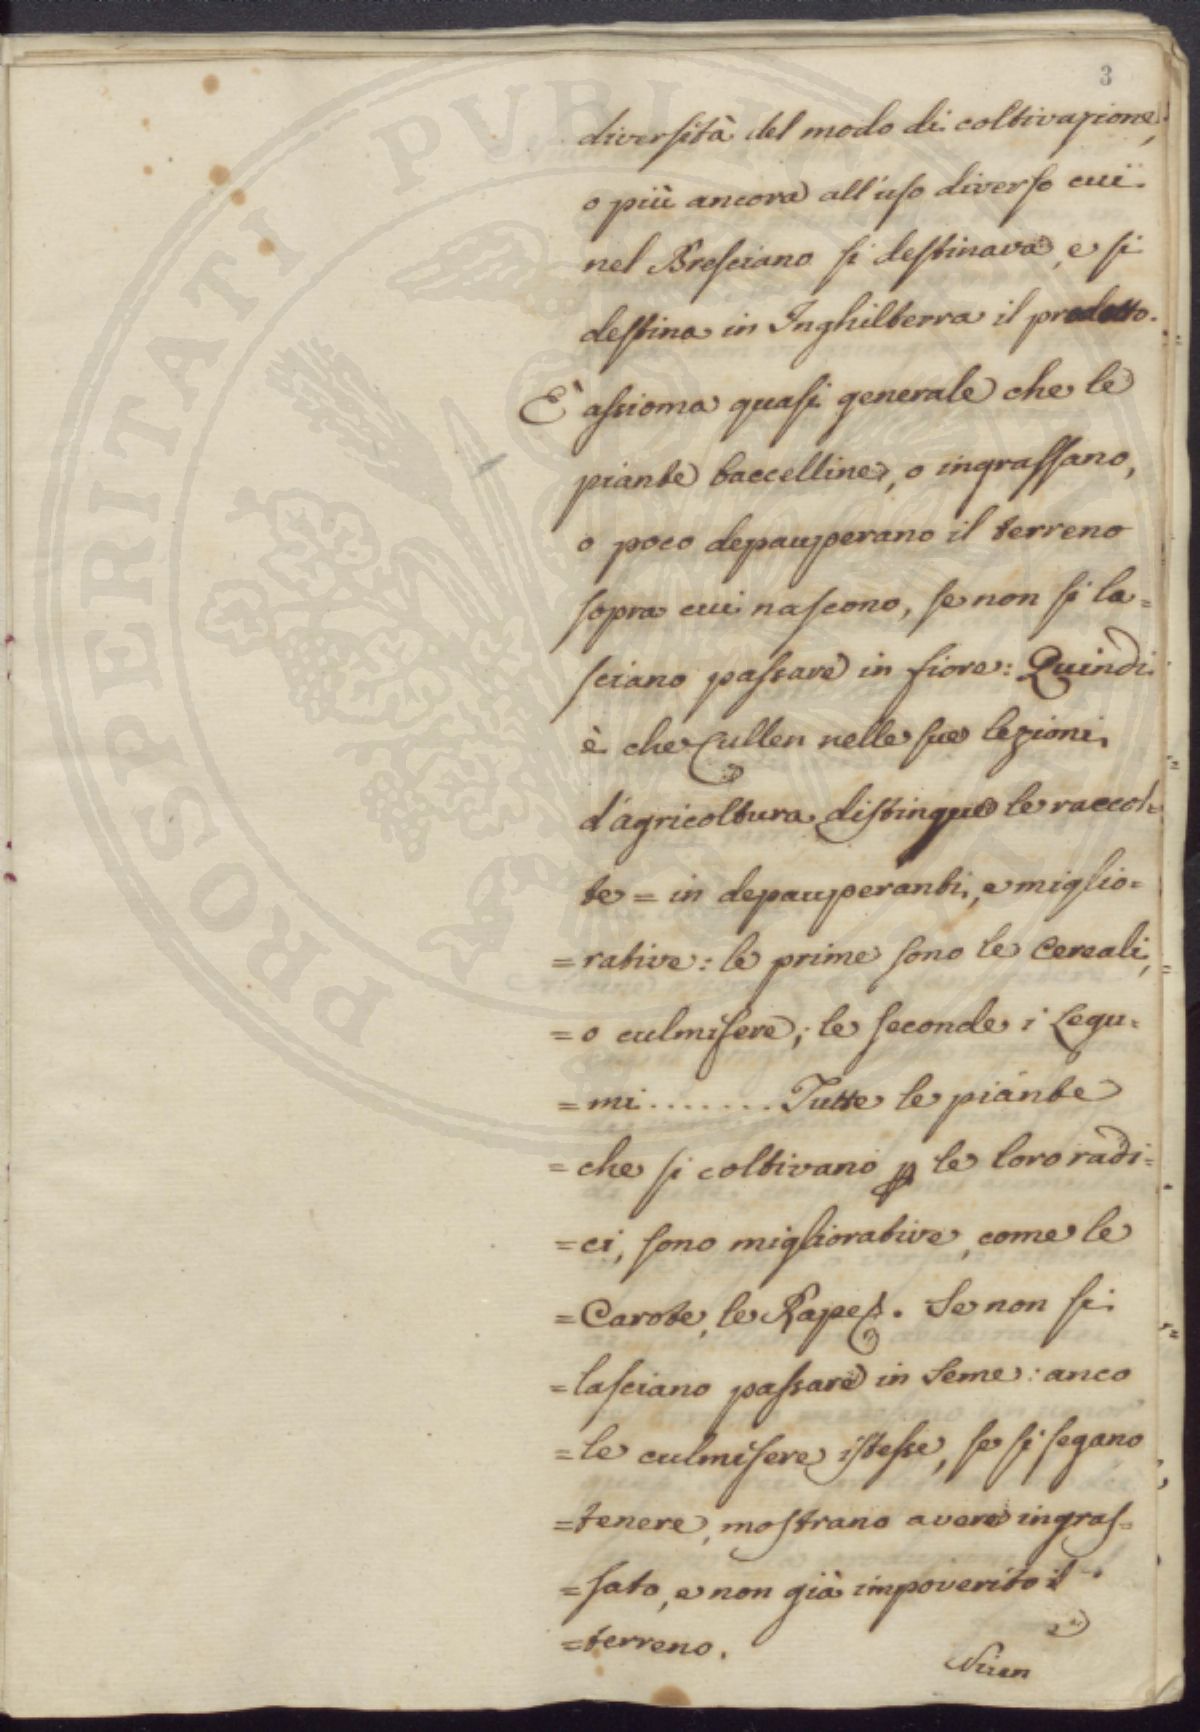 3
diversità del modo di coltivazione,
o più ancora all'uso diverso cui
nel Bresciano si destinava, e si
destina in Inghilterra il prodotto.
È assioma quasi generale che le
piante baccelline, o ingrassano,
o poco depauperano il terreno
sopra cui nascono, se non si la=
sciano passare in fiore: Quindi
è che Cullen nelle sue lezioni
d'agricoltura distingue le raccol=
te = in depauperanti, e miglio=
=rative: le prime sono le Cereali,
=o culmifere; le seconde i Legu=
=mi ........ Tutte le piante
=che si coltivano p le loro radi=
=ci, sono migliorative, come le
=Carote, le Rape &. Se non si
=lasciano passare in Seme: anco
=le culmifere istesse, se si segano
=tenere, mostrano avere ingras=
=sato, e non già impoverito il
=terreno.
Niun
PROSPERITATI PVBLIC